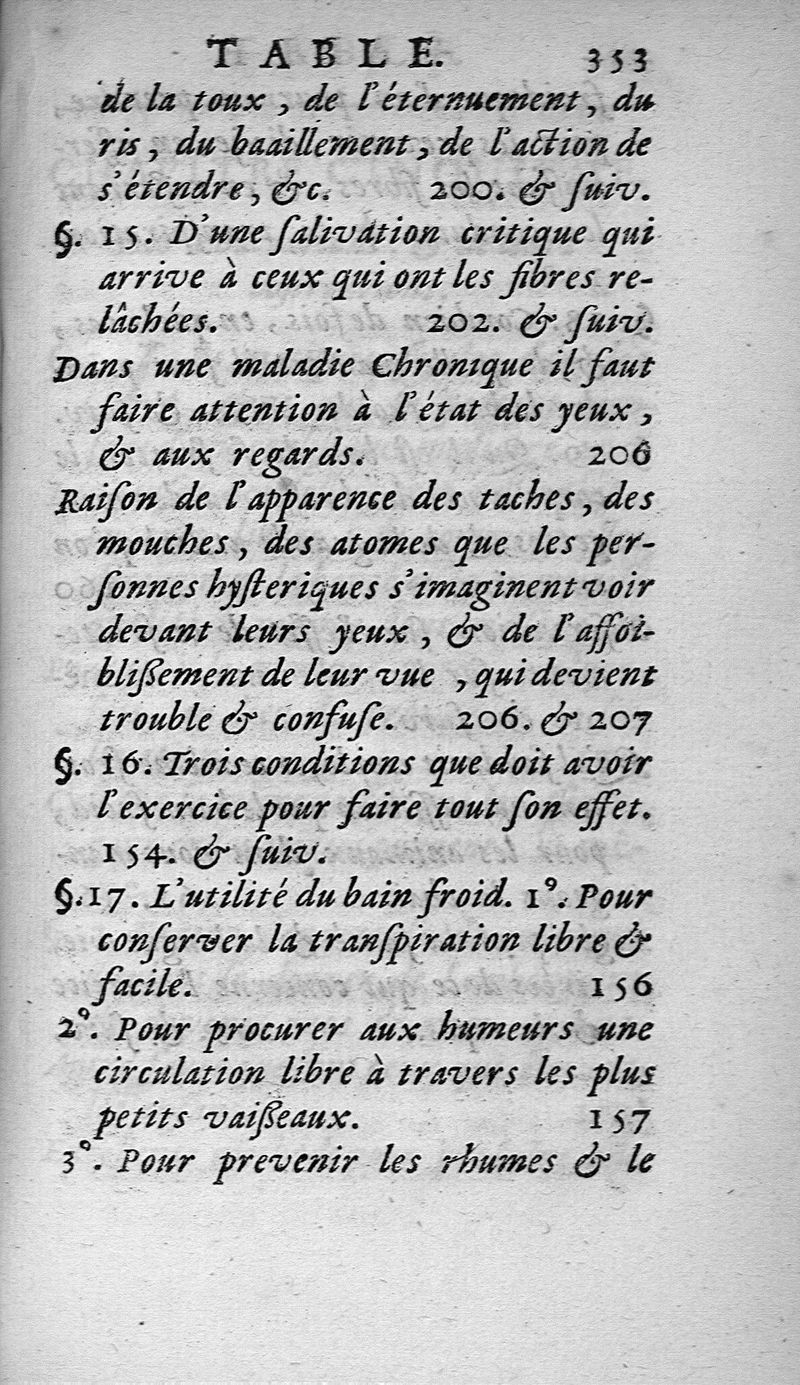 TABLE. 353
de la toux, de l'éternuement, du
ris, du baaillement, de l'action de
s'étendre, &c. 200. & ſuiv.
§. 15. D'une ſalivation critique qui
arrive à ceux qui ont les fibres re-
lâchées. 202. & ſuiv.
Dans une maladie Chronique il faut
faire attention à l'état des yeux,
& aux regards. 206
Raiſon de l'apparence des taches, des
mouches, des atomes que les per-
ſonnes hyſteriques s'imaginent voir
devant leurs yeux, & de l'affoi-
bliſſement de leur vue, qui devient
trouble & confuſe. 206. & 207
§. 16. Trois conditions que doit avoir
l'exercice pour faire tout ſon effet.
154. & ſuiv.
§. 17. L'utilité du bain froid. 1°. Pour
conſerver la tranſpiration libre &
facile. 156
2°. Pour procurer aux humeurs une
circulation libre à travers les plus
petits vaiſſeaux. 157
3°. Pour prevenir les rhumes & le